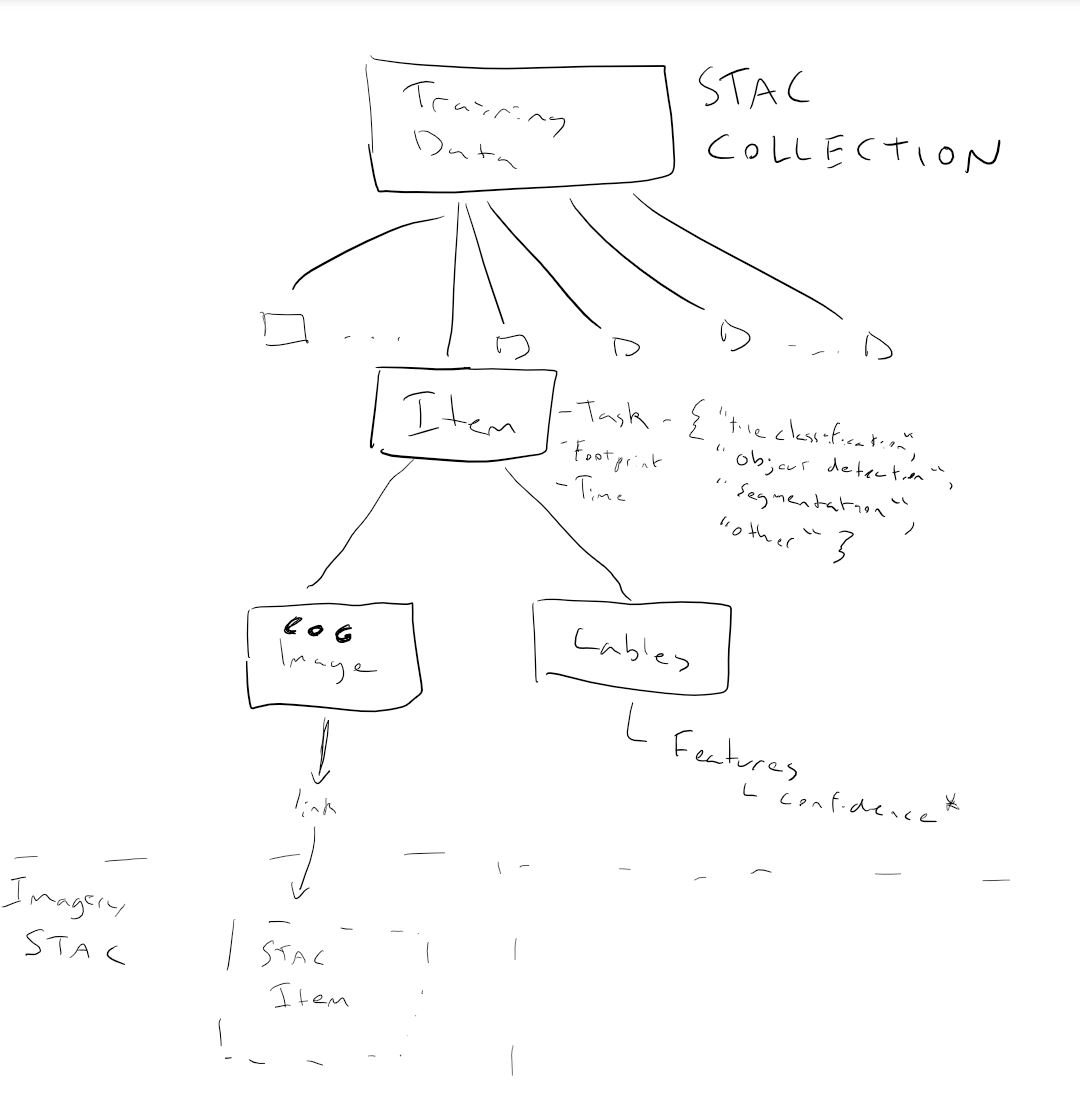 Training
Data
STAC
COLLECTION
Item
- Task - { "tile classification",
"object detection",
"segmentation",
"other" }
- Footprint
- Time
COG
Image
Lables
Features
confidence*
link
Imagery
STAC
STAC
Item